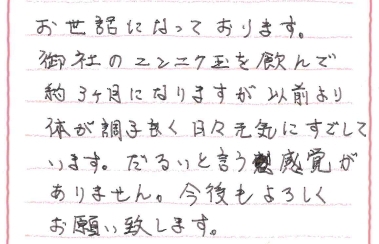 お世話になっております。
御社のニンニク玉を飲んで
約3ヶ月になりますが以前より
体が調子良く日々元気にすごして
います。だるいと言う感覚が
ありません。今後もよろしく
お願い致します。